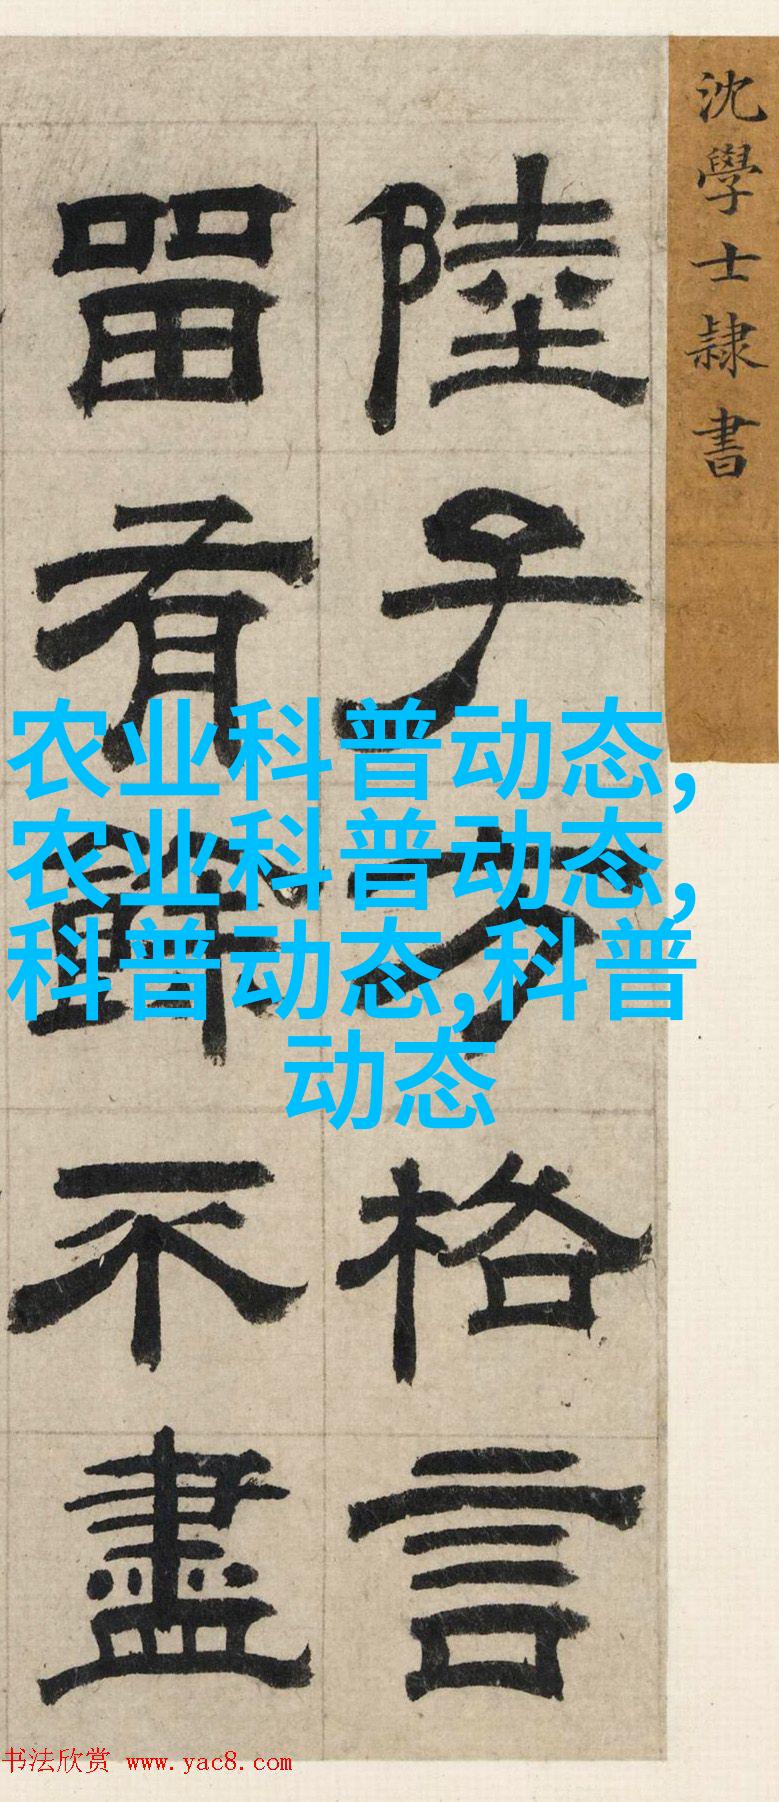 沈學士隸書
陸子方格言
畱有餘不盡
农业科普动态,
农业科普动态,
科普动态,科普
动态
书法欣赏 www.yac8.com